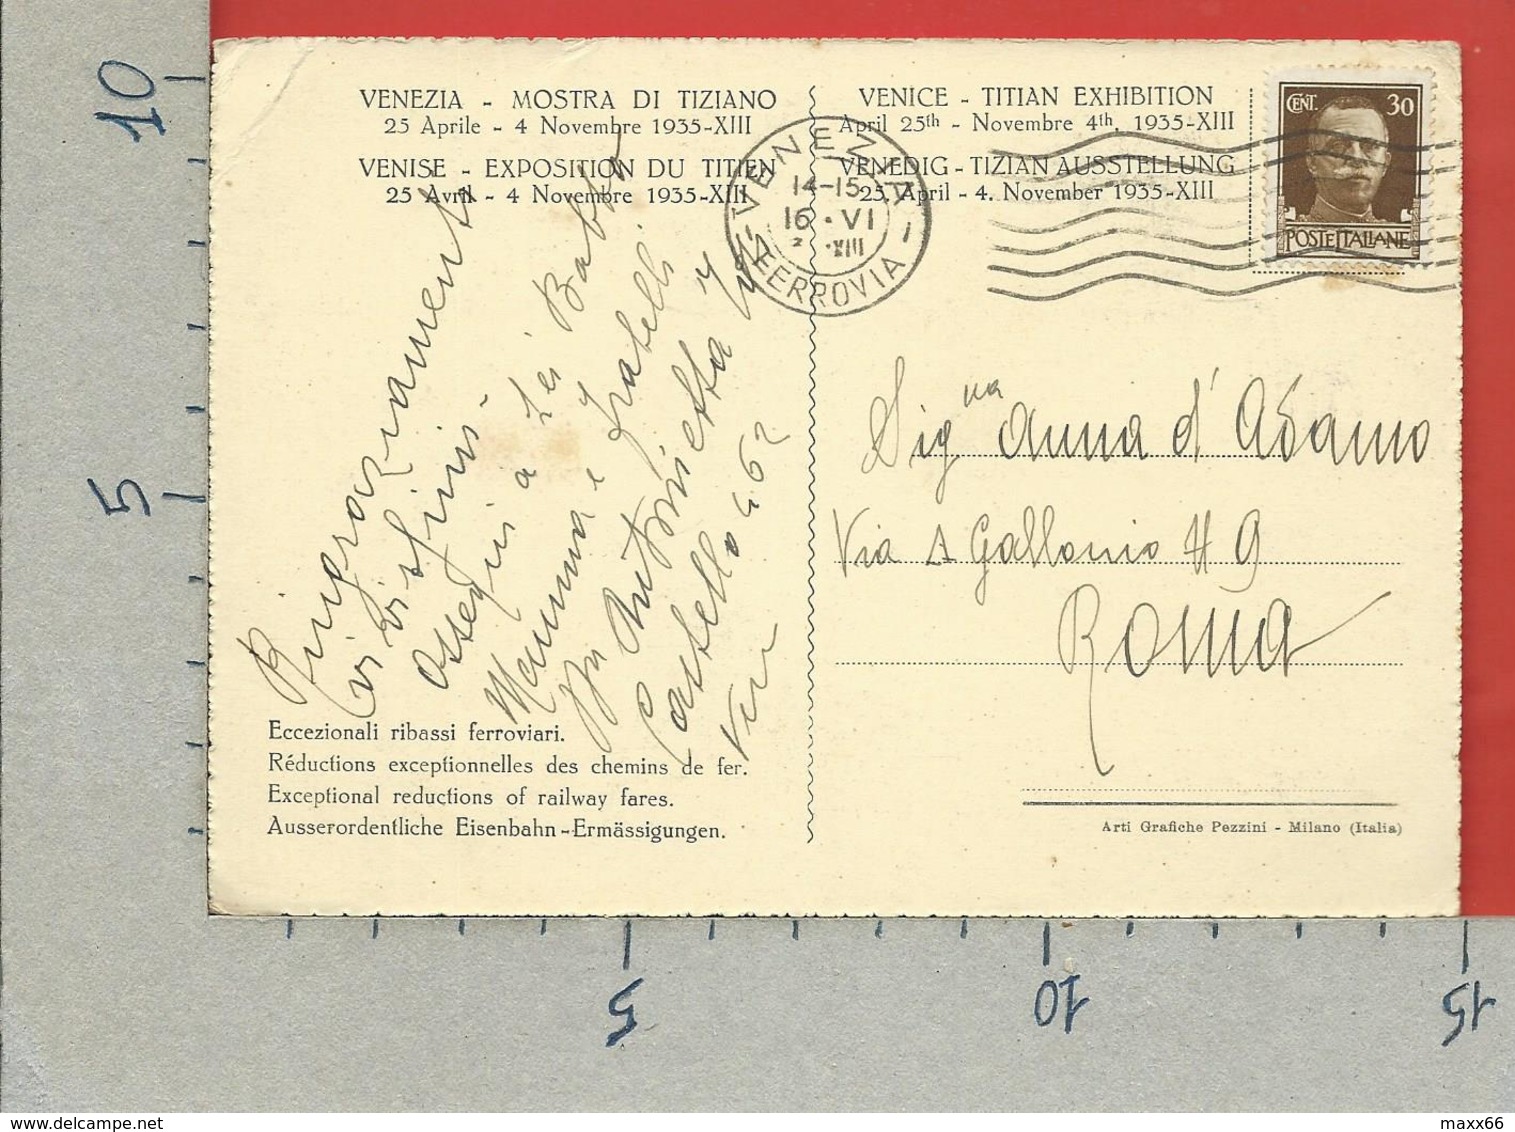 VENEZIA - MOSTRA DI TIZIANO
25 Aprile - 4 Novembre 1935-XIII
VENISE - EXPOSITION DU TITIEN
25 Avril - 4 Novembre 1935-XIII
VENICE - TITIAN EXHIBITION
April 25th - Novembre 4th. 1935-XIII
VENEDIG - TIZIAN AUSSTELLUNG
25. April - 4. November 1935-XIII
VENEZIA
14-15
16 · VI
XIII
FERROVIA
CENT. 30
POSTE ITALIANE
Ringraziamenti
ossequi a Lei Babbo
Mamma e fratelli
Antonietta
Castello 462
Signa Anna d'Adamo
Via A Gallonio N 9
ROMA
Eccezionali ribassi ferroviari.
Réductions exceptionnelles des chemins de fer.
Exceptional reductions of railway fares.
Ausserordentliche Eisenbahn-Ermässigungen.
Arti Grafiche Pezzini - Milano (Italia)
10
5
5
10
15
maxx66